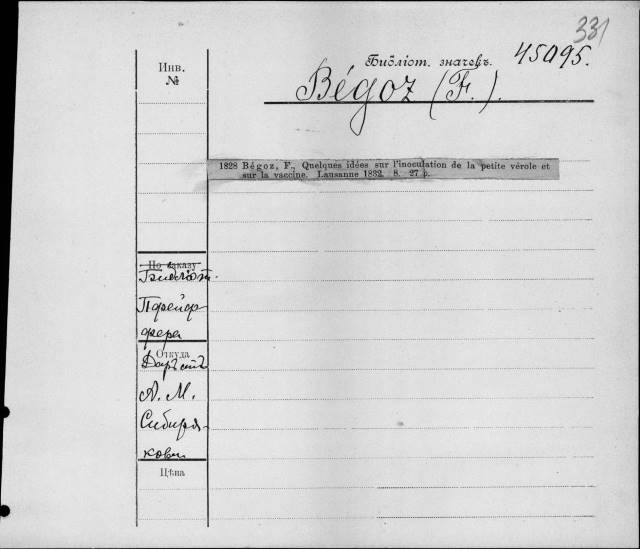 331
Инв.
№
Библіот. значекъ. 45095.
Bégoz (F.).
1828 Bégoz, F., Quelques idées sur l'inoculation de la petite vérole et
sur la vaccine. Lausanne 1832. 8. 27 p.
По заказу
Библіот.
Пфейф-
фера
Откуда
Даръ отъ
А. М.
Сибиря-
кова
Цѣна